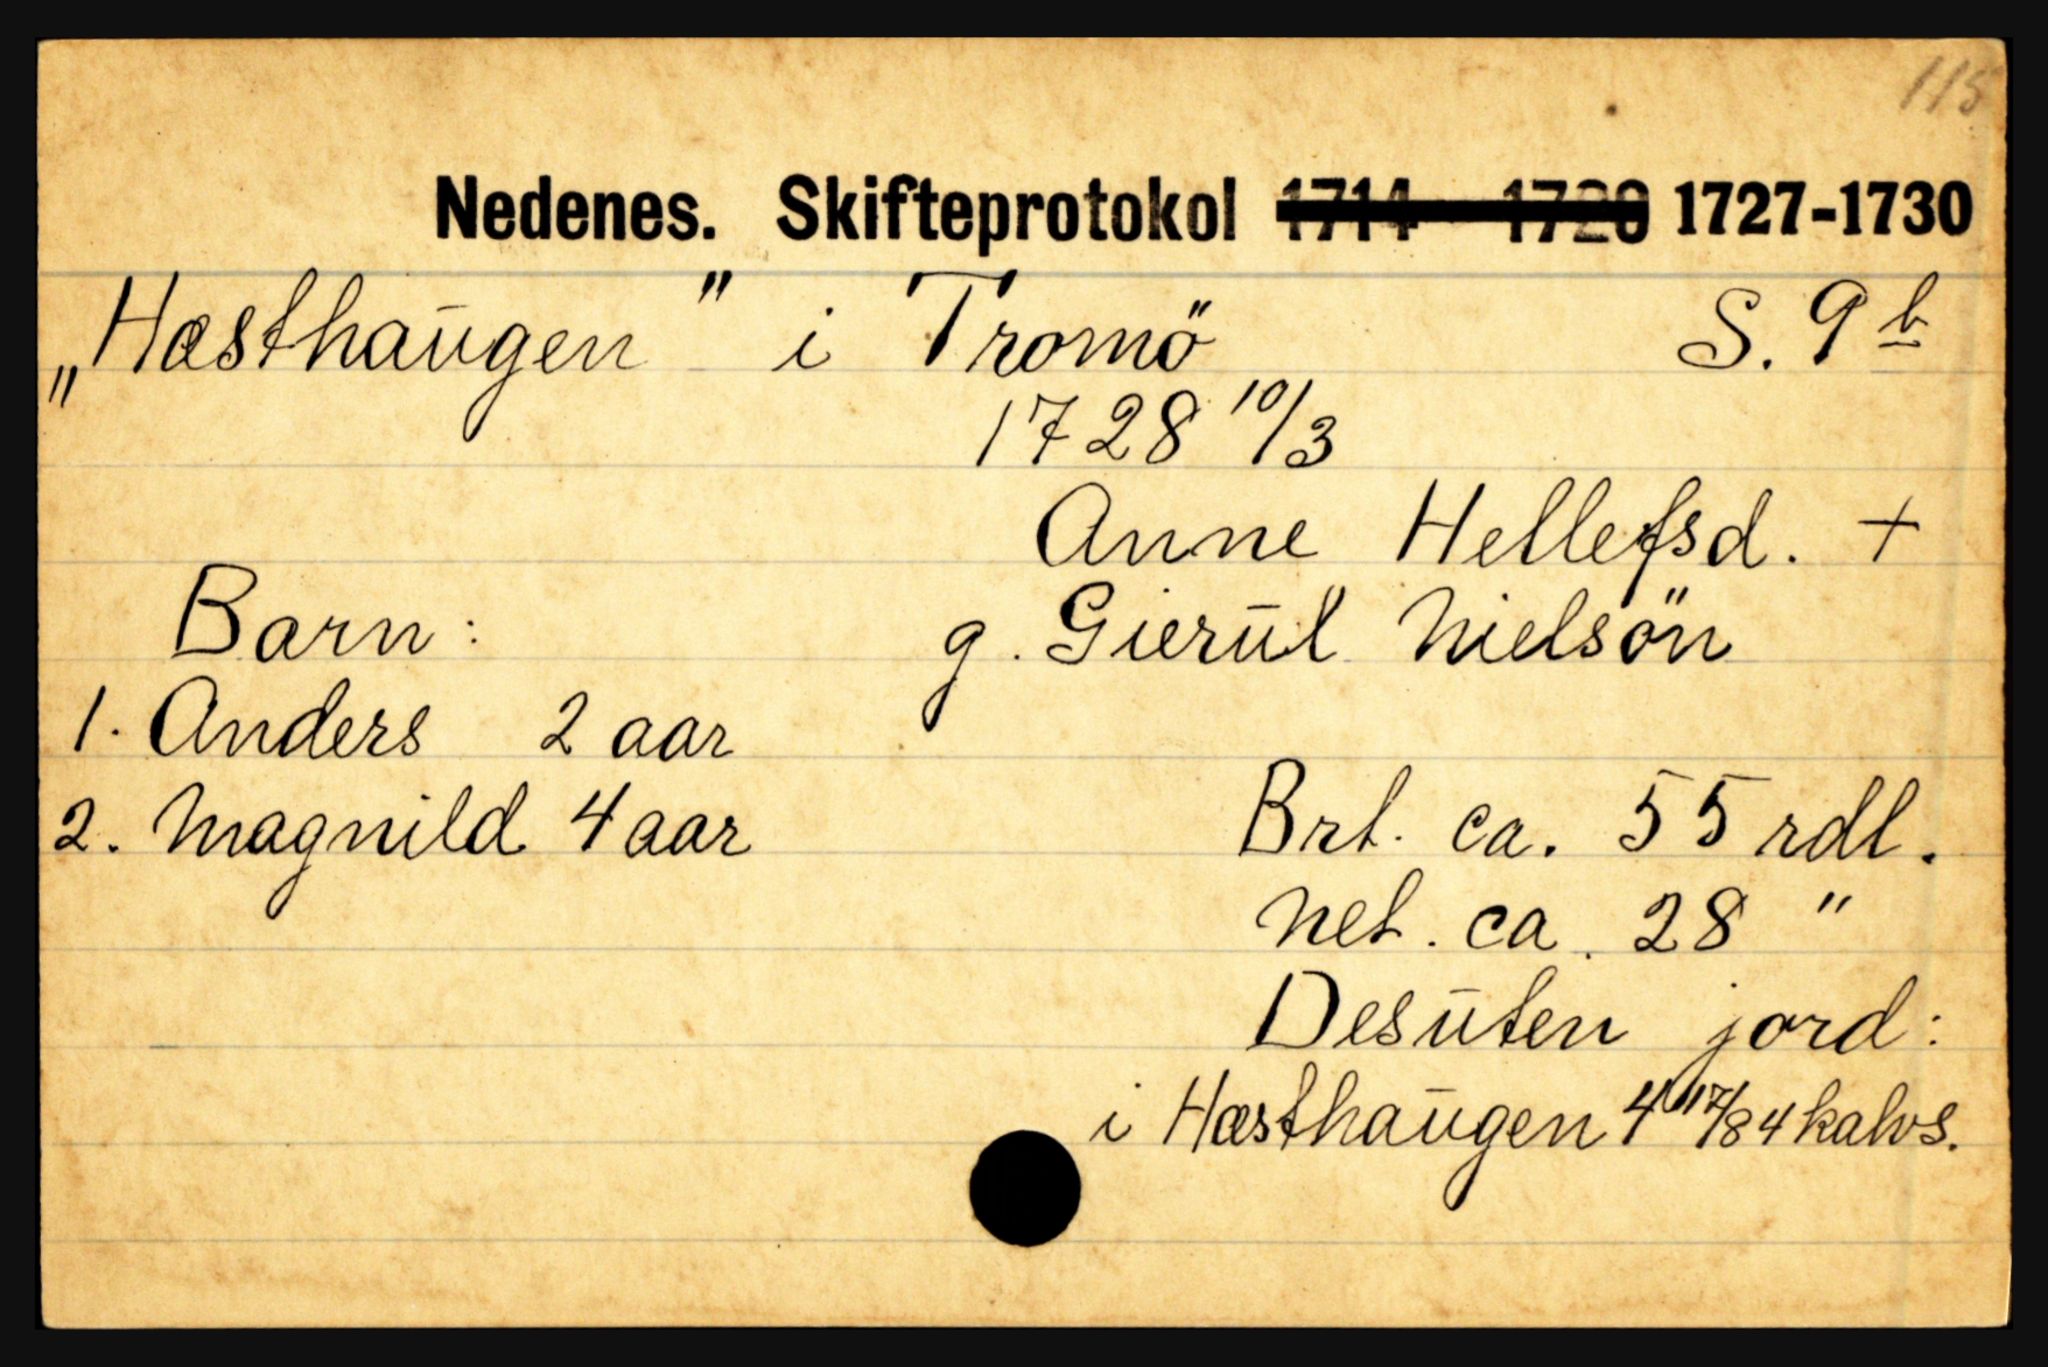 115
Nedenes. Skifteprotokol 1714 - 1720 1727-1730
„Hæsthaugen" i Tromö S. 9 b
1728 10/3
Anne Hellefsd. +
Barn: g. Gierul Nielsön
1. Anders 2 aar
2. Magnild 4 aar Brt. ca. 55 rdl.
Net. ca. 28 "
Desuten jord:
i Hæsthaugen 4 17/84 kalvs.